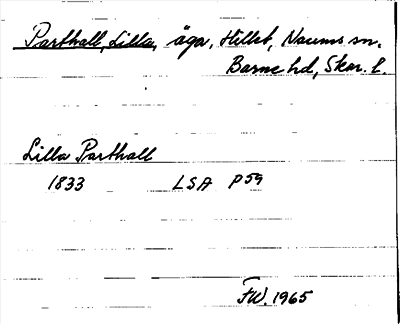 Parthall, Lilla, äga, Hillet, Naums sn.
Barne hd, Skar. l.
Lilla Parthall
1833 LSA P59
FW. 1965